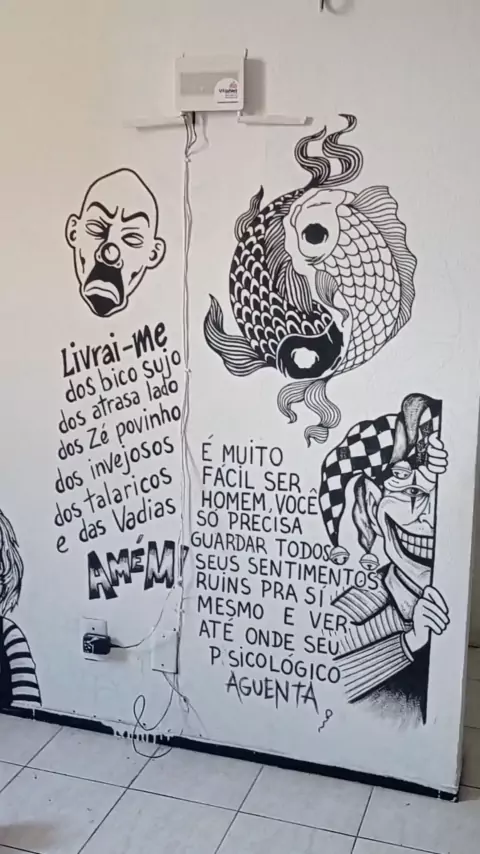 Livrai-me
dos bico sujo
dos atrasa lado
dos Zé povinho
dos invejosos
dos talaricos
e das Vadias
AMÉM!
É MUITO
FÁCIL SER
HOMEM, VOCÊ
SÓ PRECISA
GUARDAR TODOS
SEUS SENTIMENTOS
RUINS PRA SÍ
MESMO E VER
ATÉ ONDE SEU
PSICOLÓGICO
AGUENTA